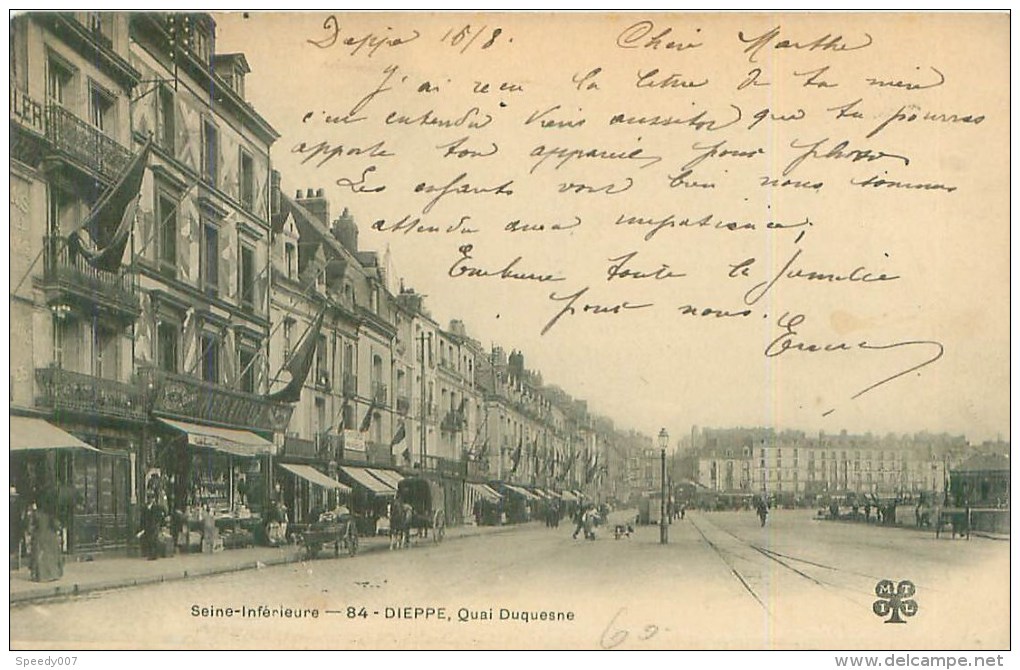 Dieppe 16/8. Chère Marthe
J'ai reçu la lettre de ta mère
c'est entendu viens aussitôt que tu pourras
apporte ton appareil pour photo
Les enfants vont bien nous sommes
attendu avec impatience,
Embrasse toute la famille
pour nous.
LER
Seine-Inférieure — 84 - DIEPPE, Quai Duquesne
M T I L
69
Speedy007
www.delcampe.net